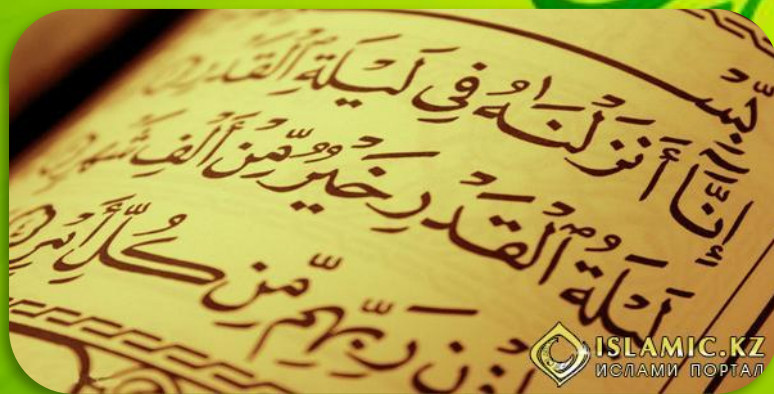 بِسْ
إِنَّآ أَنزَلْنَٰهُ فِي لَيْلَةِ ٱلْقَدْرِ
لَيْلَةُ ٱلْقَدْرِ خَيْرٌ مِّنْ أَلْفِ شَهْرٍ
رَبِّهِم مِّن كُلِّ أَمْرٍ ٤
ISLAMIC.KZ
ИСЛАМИ ПОРТАЛ